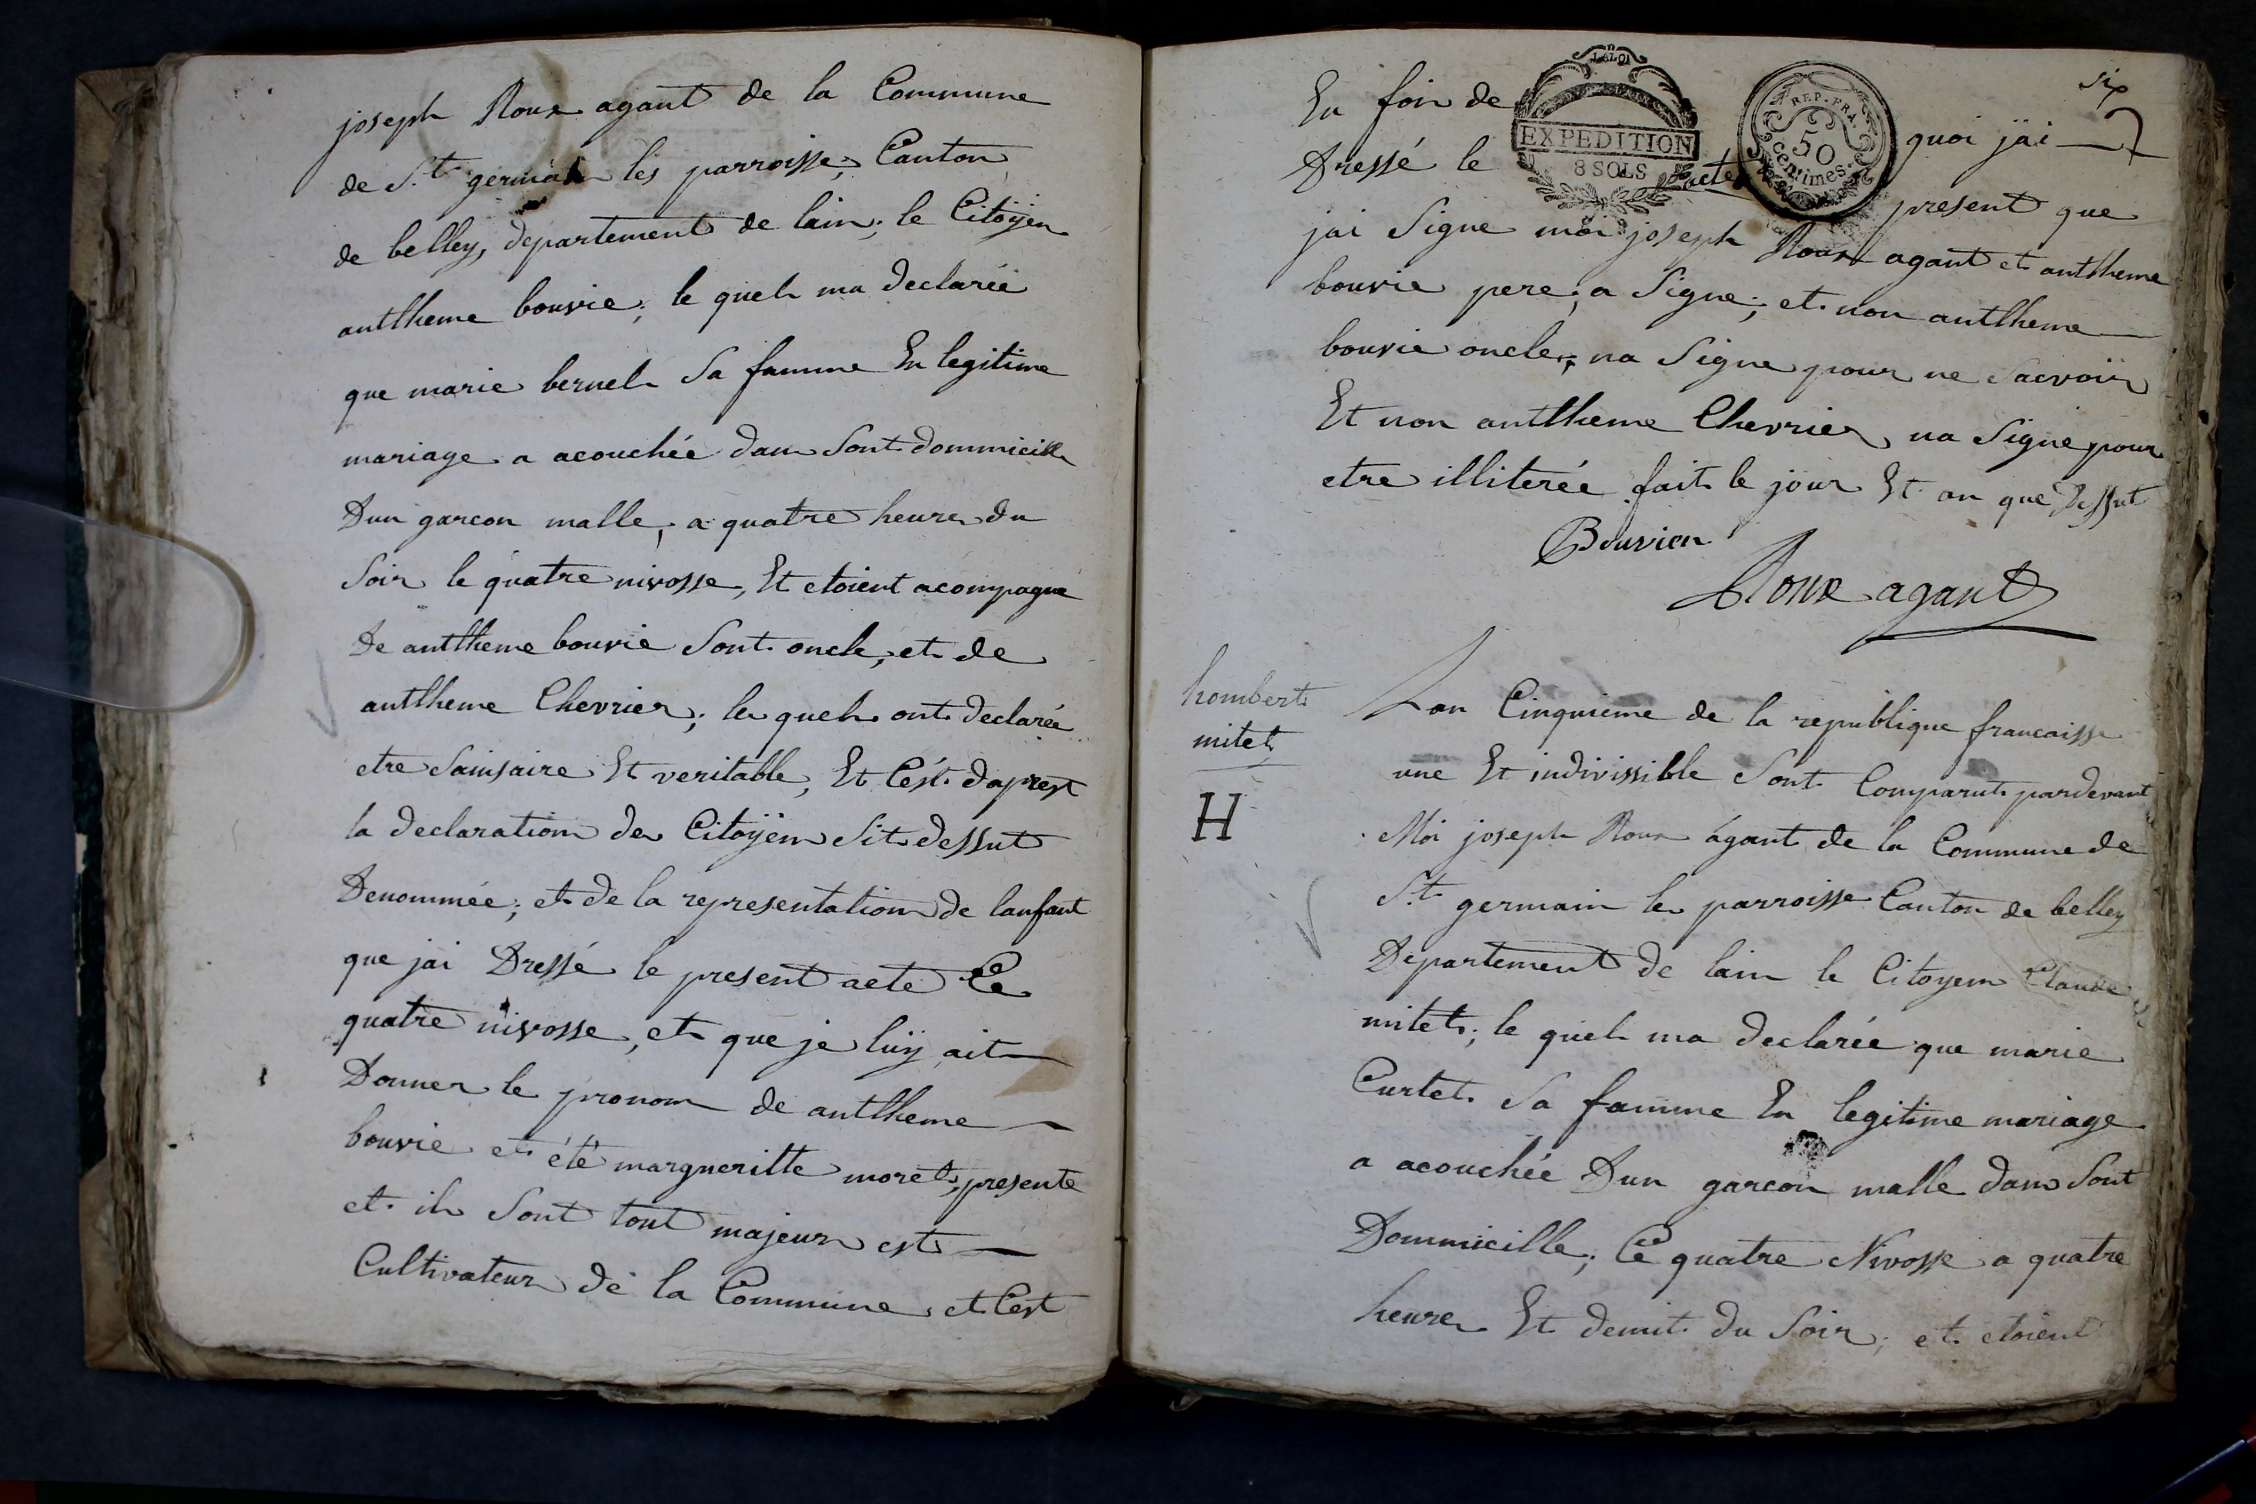 joseph Roux agant de la Commune
de St. germain les parroisse, Canton
de belley, departement de lain, le Citoÿen
antlheme bouvie, le quel ma declarée
que marie bernel Sa famme En legitime
mariage a acouchée dans Sont dommicille
Dun garcon malle, a quatre heure du
Soir le quatre nivosse, Et etoient acompagne
De antlheme bouvie Sont oncle, et de
antlheme Chevrier, les quels ont declarée
etre Sainsaire Et veritable, Et Cést daprest
la declaration des Citoÿens Sit dessut
Denommée; et de la representation de lanfant
que jai Dressé le present acte Ce
quatre nivosse, et que je luÿ ait
Donner le pronom de antlheme
bouvie et été margueritte moret, presente
et ils Sont tout majeurs est
Cultivateur de la Commune et Cest
six
En foin de quoi jäi
Dressé le acte present que
LA LOI
EXPEDITION
8 SOLS
REP. FRA.
50
centimes.
jai Signe moi joseph Roux agant et antlheme
bouvie pere, a Signe, et non antlheme
bouvie oncle, na Signe pour ne Sacvoir
Et non antlheme Chevrier na Signe pour
etre illiterée fait le jour Et an que Dessut
Bouvier
Roux agant
hombert
mitet
H
Lan Cinquieme de la republique francaisse
une Et indivissible Sont Comparut pardevant
Moi joseph Roux agant de la Commune de
St. germain les parroisse Canton de belley
Departement de lain le Citoyen Claude
mitet, le quel ma declarée que marie
Curtet Sa famme En legitime mariage
a acouchée Dun garcon malle dans Sont
Dommicille, Ce quatre Nivosse a quatre
heures Et demit du Soir, et etoient